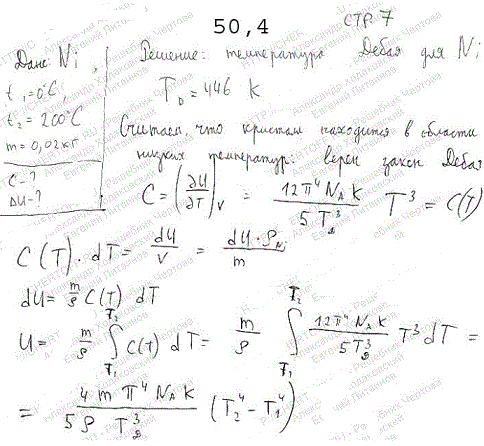 50,4
стр 7
Дано: Ni,
t₁=0°C,
t₂=200°C
m=0,02кг
C-?
ΔU-?
Решение: температура Дебая для Ni
T_D = 446 K
Считаем, что кристалл находится в области
низких температур: верен закон Дебая
C = (∂U/∂T)_V = 12π⁴ N_A K / 5 T_D³ T³ = C(T)
C(T)·dT = dU/V = dU·ρ_Ni / m
dU = m/ρ C(T) dT
U = m/ρ ∫_{T₁}^{T₂} C(T) dT = m/ρ ∫_{T₁}^{T₂} 12π⁴ N_A K / 5T_D³ T³ dT =
= 4 m π⁴ N_A K / 5 ρ T_D³ (T₂⁴ - T₁⁴)